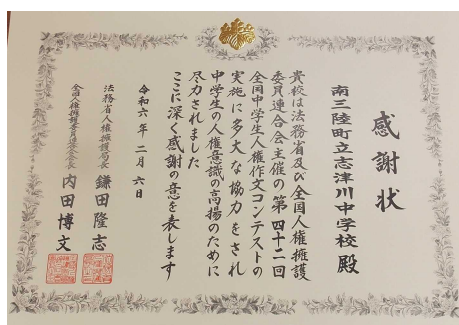 感謝状
南三陸町立志津川中学校 殿
貴校は法務省及び全国人権擁護
委員連合会主催の第四十二回
全国中学生人権作文コンテストの
実施に多大な協力をされ
中学生の人権意識の高揚のために
尽力されました
ここに深く感謝の意を表します
令和六年二月六日
法務省人権擁護局長 鎌田隆志
全国人権擁護委員連合会会長 内田博文